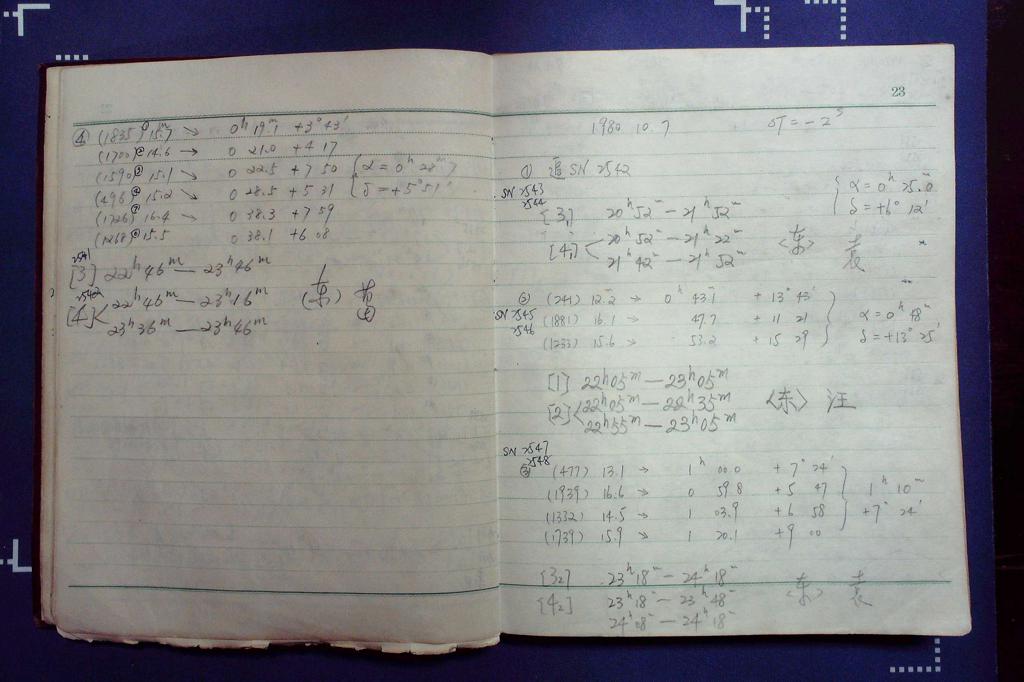 ④ (1835) 15.7 → 0ʰ 19ᵐ.1 +3° 43′
(1700) 14.6 → 0 21.0 +4 17
(1590) 15.1 → 0 22.5 +7 50
(496) 15.2 → 0 28.5 +5 31
(1726) 16.4 → 0 38.3 +7 59
(1268) 15.5 0 38.1 +6 08
{ α = 0ʰ 28ᵐ
δ = +5° 51′
2541
[3] 22ʰ46ᵐ — 23ʰ46ᵐ
2542
[4] < 22ʰ46ᵐ — 23ʰ16ᵐ
23ʰ36ᵐ — 23ʰ46ᵐ
(东)
23
1980.10.7 δT = -2ˢ
① 追 SN 2542
SN 2543
2544
{ α = 0ʰ 25.0
δ = +6° 12′
[3₁] 20ʰ52ᵐ — 21ʰ52ᵐ
[4₁] < 20ʰ52ᵐ — 21ʰ22ᵐ
21ʰ42ᵐ — 21ʰ52ᵐ
<东> 袁
② (241) 12.2 → 0ʰ 43.1 + 13° 43′
SN 2545
2546
(1881) 16.1 → 47.7 + 11 21
(1233) 15.6 → 53.2 + 15 29
} α = 0ʰ 48ᵐ
δ = +13° 25′
[1] 22ʰ05ᵐ — 23ʰ05ᵐ
[2] < 22ʰ05ᵐ — 22ʰ35ᵐ
22ʰ55ᵐ — 23ʰ05ᵐ
<东> 汪
SN 2547
2548
③ (477) 13.1 → 1ʰ 00.0 + 7° 24′
(1939) 16.6 → 0 59.8 +5 47
(1332) 14.5 → 1 03.9 +6 58
(1739) 15.9 → 1 20.1 +9 00
} 1ʰ 10ᵐ
+7° 24′
[3₂] 23ʰ18ᵐ — 24ʰ18ᵐ
[4₂] 23ʰ18ᵐ — 23ʰ48ᵐ
24ʰ08ᵐ — 24ʰ18ᵐ
<东> 袁